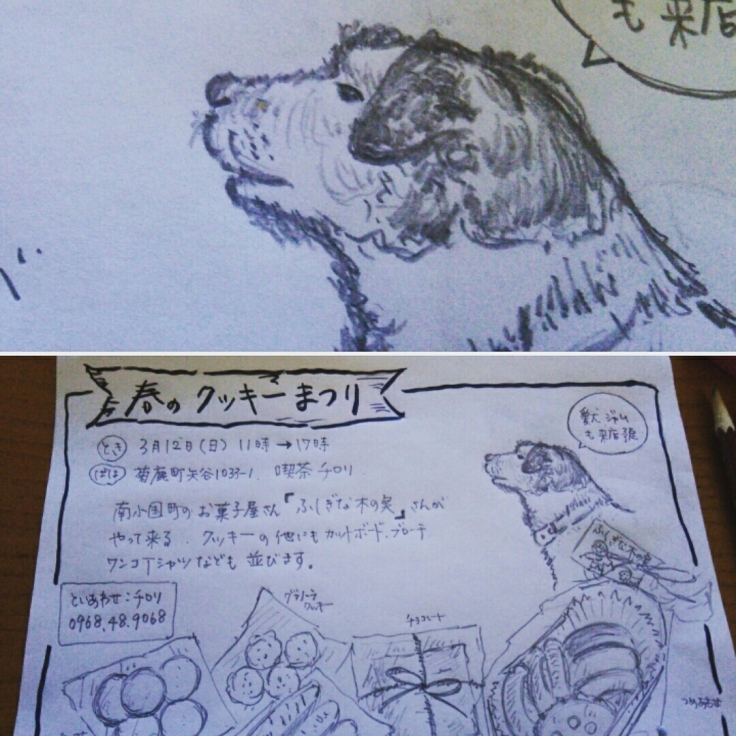 も来店
春のクッキーまつり
とき 3月12日(日) 11時→17時
ばしょ 菊鹿町矢谷1033-1. 喫茶チロリ
南小国町のお菓子屋さん『ふしぎな木の実』さんが
やって来る. クッキーの他にもカットボード、ブローチ
ワンコTシャツなども並びます。
といあわせ:チロリ
0968.48.9068
犬ジャム
も来店
ふしぎな木の実
グラノーラ
クッキー
チョコレート